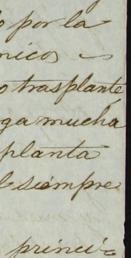 o por la
nicos
o trasplante
ga mucha
planta
l siempre
princi-